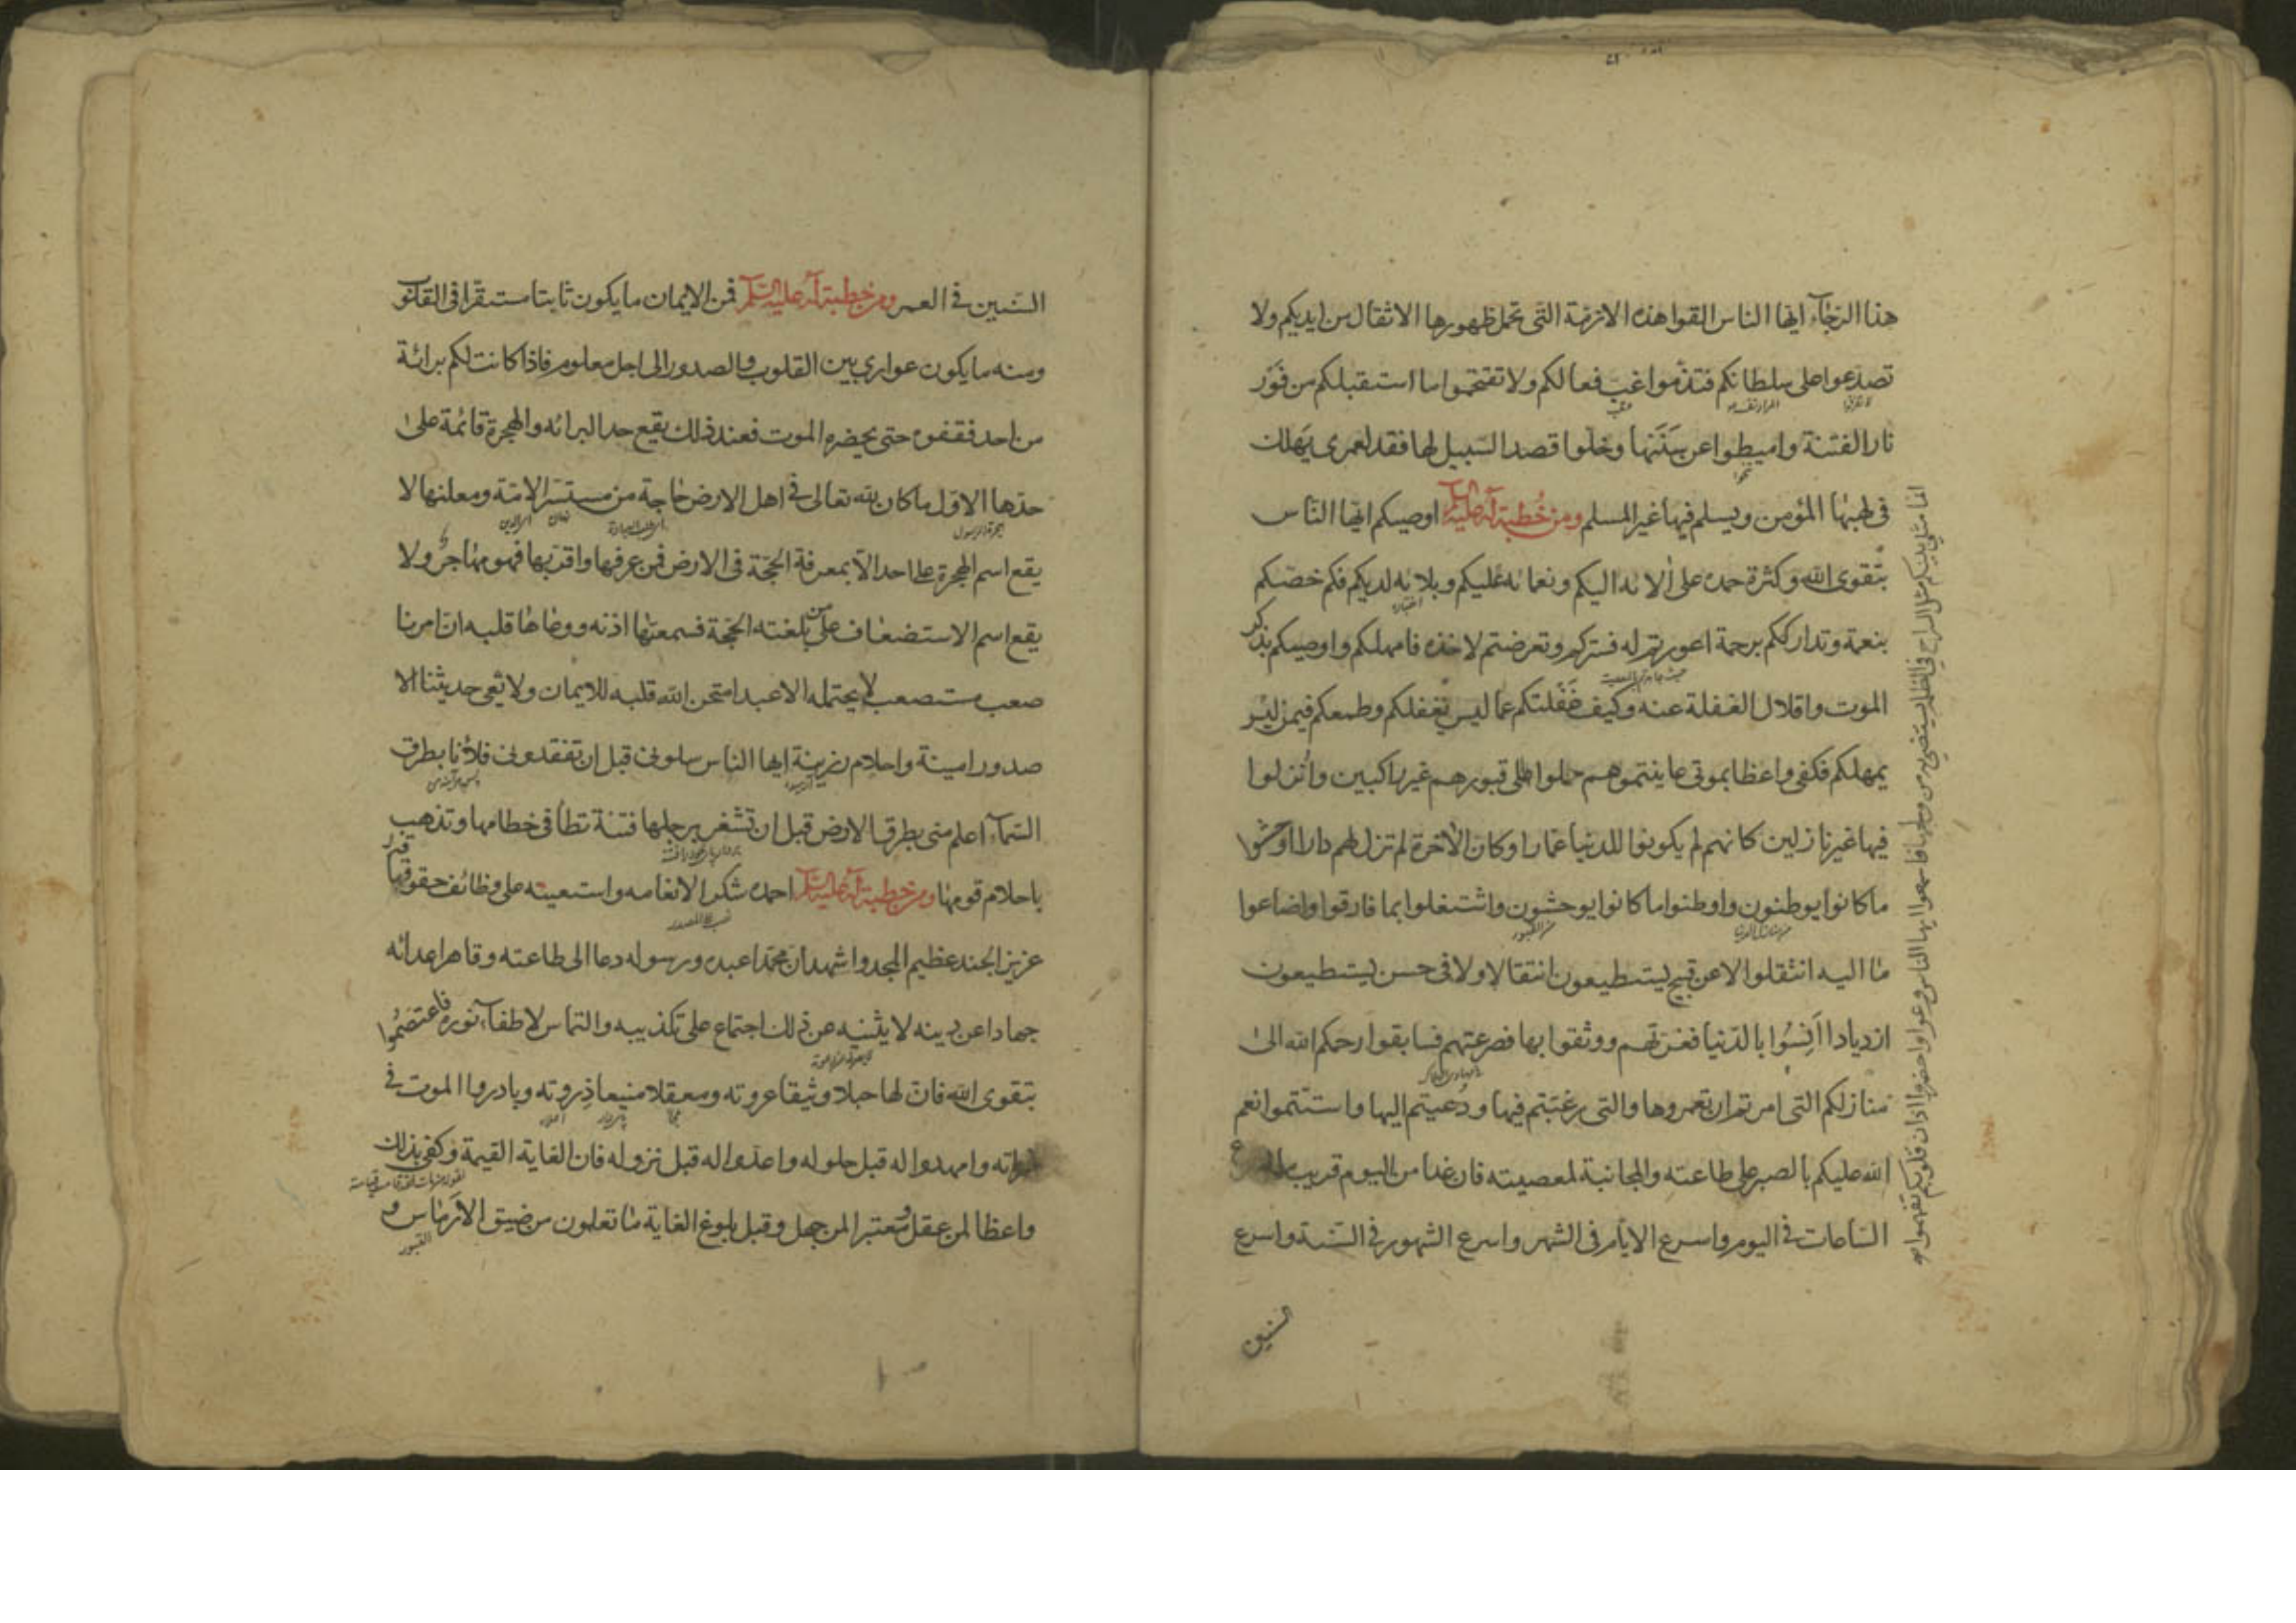 هذا الرجاء ايها الناس القوا هذه الازمة التى تحمل ظهورها الاثقال من ايديكم ولا
تصدعوا على سلطانكم فتذموا غب فعالكم ولا تقتحموا ما استقبلكم من فور
نار الفتنة واميطوا عن سننها وخلوا قصد السبيل لها فقد لعمرى يهلك
فى لهبها المؤمن ويسلم فيها غير المسلم ومن خطبة له عليه السلم اوصيكم ايها الناس
بتقوى الله وكثرة حمده على الائه اليكم ونعمائه عليكم وبلائه لديكم فكم خصكم
بنعمة وتدارككم برحمة اعورتم له فستركم وتعرضتم لاخذه فامهلكم واوصيكم بذكر
الموت واقلال الغفلة عنه وكيف غفلتكم عما ليس يغفلكم وطمعكم فيمن ليس
يمهلكم فكفى واعظا بموتى عاينتموهم حملوا الى قبورهم غير راكبين وانزلوا
فيها غير نازلين كانهم لم يكونوا للدنيا عمارا وكان الاخرة لم تزل لهم دارا اوحشوا
ما كانوا يوطنون واوطنوا ما كانوا يوحشون واشتغلوا بما فارقوا واضاعوا
ما اليه انتقلوا لا عن قبيح يستطيعون انتقالا ولا فى حسن يستطيعون
ازديادا انسوا بالدنيا فغرتهم ووثقوا بها فصرعتهم فسابقوا رحمكم الله الى
منازلكم التى امرتم ان تعمروها والتى رغبتم فيها ودعيتم اليها واستتموا نعم
الله عليكم بالصبر على طاعته والمجانبة لمعصيته فان غدا من اليوم قريب
الساعات فى اليوم واسرع الايام فى الشهر واسرع الشهور فى السنة واسرع
السنين
انما مثلى بينكم مثل السراج فى الظلمة يستضئ به من ولجها فاسمعوا ايها الناس وعوا واحضروا اذان قلوبكم تفهموا
السنين فى العمر ومن خطبة له عليه السلم فمن الايمان ما يكون ثابتا مستقرا فى القلوب
ومنه ما يكون عوارى بين القلوب والصدور الى اجل معلوم فاذا كانت لكم برائة
من احد فقفوه حتى يحضره الموت فعند ذلك يقع حد البرائه والهجرة قائمة على
حدها الاول ما كان لله تعالى فى اهل الارض حاجة من مستسر الامة ومعلنها لا
يقع اسم الهجرة على احد الا بمعرفة الحجة فى الارض فمن عرفها واقر بها فهو مهاجر ولا
يقع اسم الاستضعاف على من بلغته الحجة فسمعتها اذنه ووعاها قلبه ان امرنا
صعب مستصعب لا يحتمله الا عبد امتحن الله قلبه للايمان ولا تعى حديثنا الا
صدور امينة واحلام رزينة ايها الناس سلونى قبل ان تفقدونى فلانا بطرق
السماء اعلم منى بطرق الارض قبل ان تشغر برجلها فتنة تطأ فى خطامها وتذهب
باحلام قومها ومن خطبة له عليه السلم احمده شكرا لانعامه واستعينه على وظائف حقوقه
عزيز الجند عظيم المجد واشهد ان محمدا عبده ورسوله دعا الى طاعته وقاهر اعدائه
جهادا عن دينه لا يثنيه عن ذلك اجتماع على تكذيبه والتماس لاطفاء نوره فاعتصموا
بتقوى الله فان لها حبلا وثيقا عروته ومعقلا منيعا ذروته وبادروا الموت فى
غمراته وامهدوا له قبل حلوله واعدوا له قبل نزوله فان الغاية القيمة وكفى بذلك
واعظا لمن عقل ومعتبرا لمن جهل وقبل بلوغ الغاية ما تعلمون من ضيق الارماس و
القبور